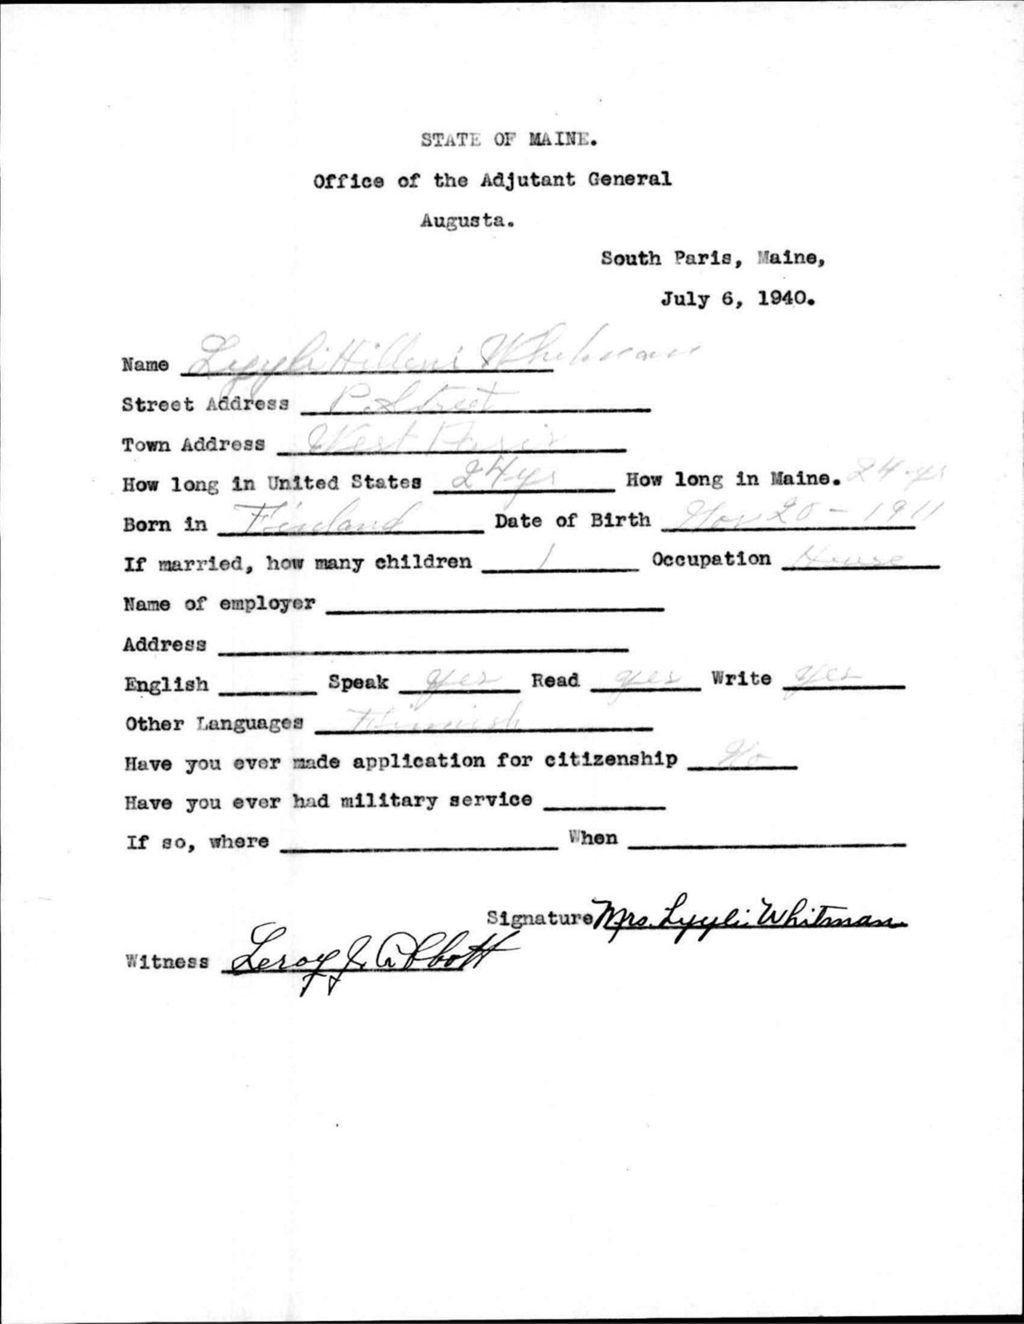 STATE OF MAINE.
Office of the Adjutant General
Augusta.
South Paris, Maine,
July 6, 1940.
Name Lyyli Whitman
Street Address Street
Town Address West Paris
How long in United States 24 yrs How long in Maine. 24 yrs
Born in Finland Date of Birth Nov 20 - 1911
If married, how many children 1 Occupation House
Name of employer
Address
English Speak yes Read yes Write yes
Other Languages Finnish
Have you ever made application for citizenship No
Have you ever had military service
If so, where When
Signature Mrs. Lyyli Whitman
Witness Leroy J. Abbott